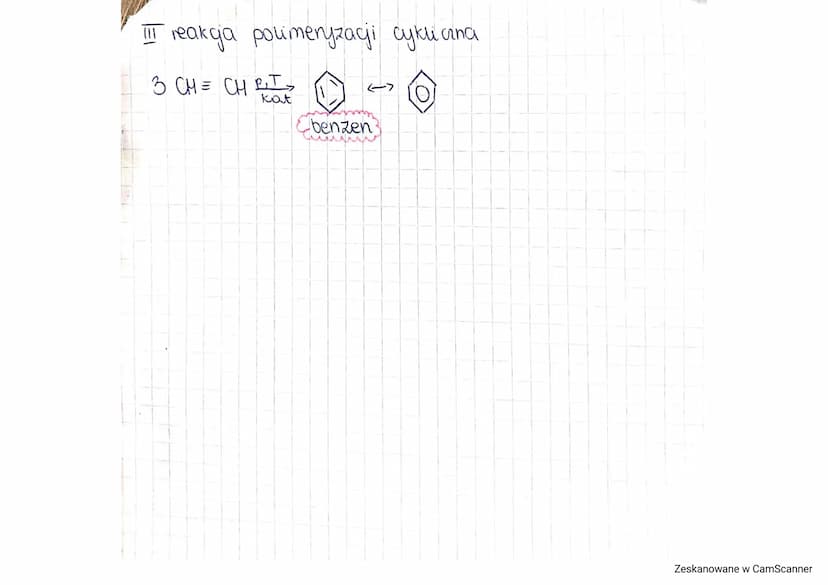 III reakcja polimeryzacji cykliczna
3 CH ≡ CH p,T kat ↔
benzen
Zeskanowane w CamScanner